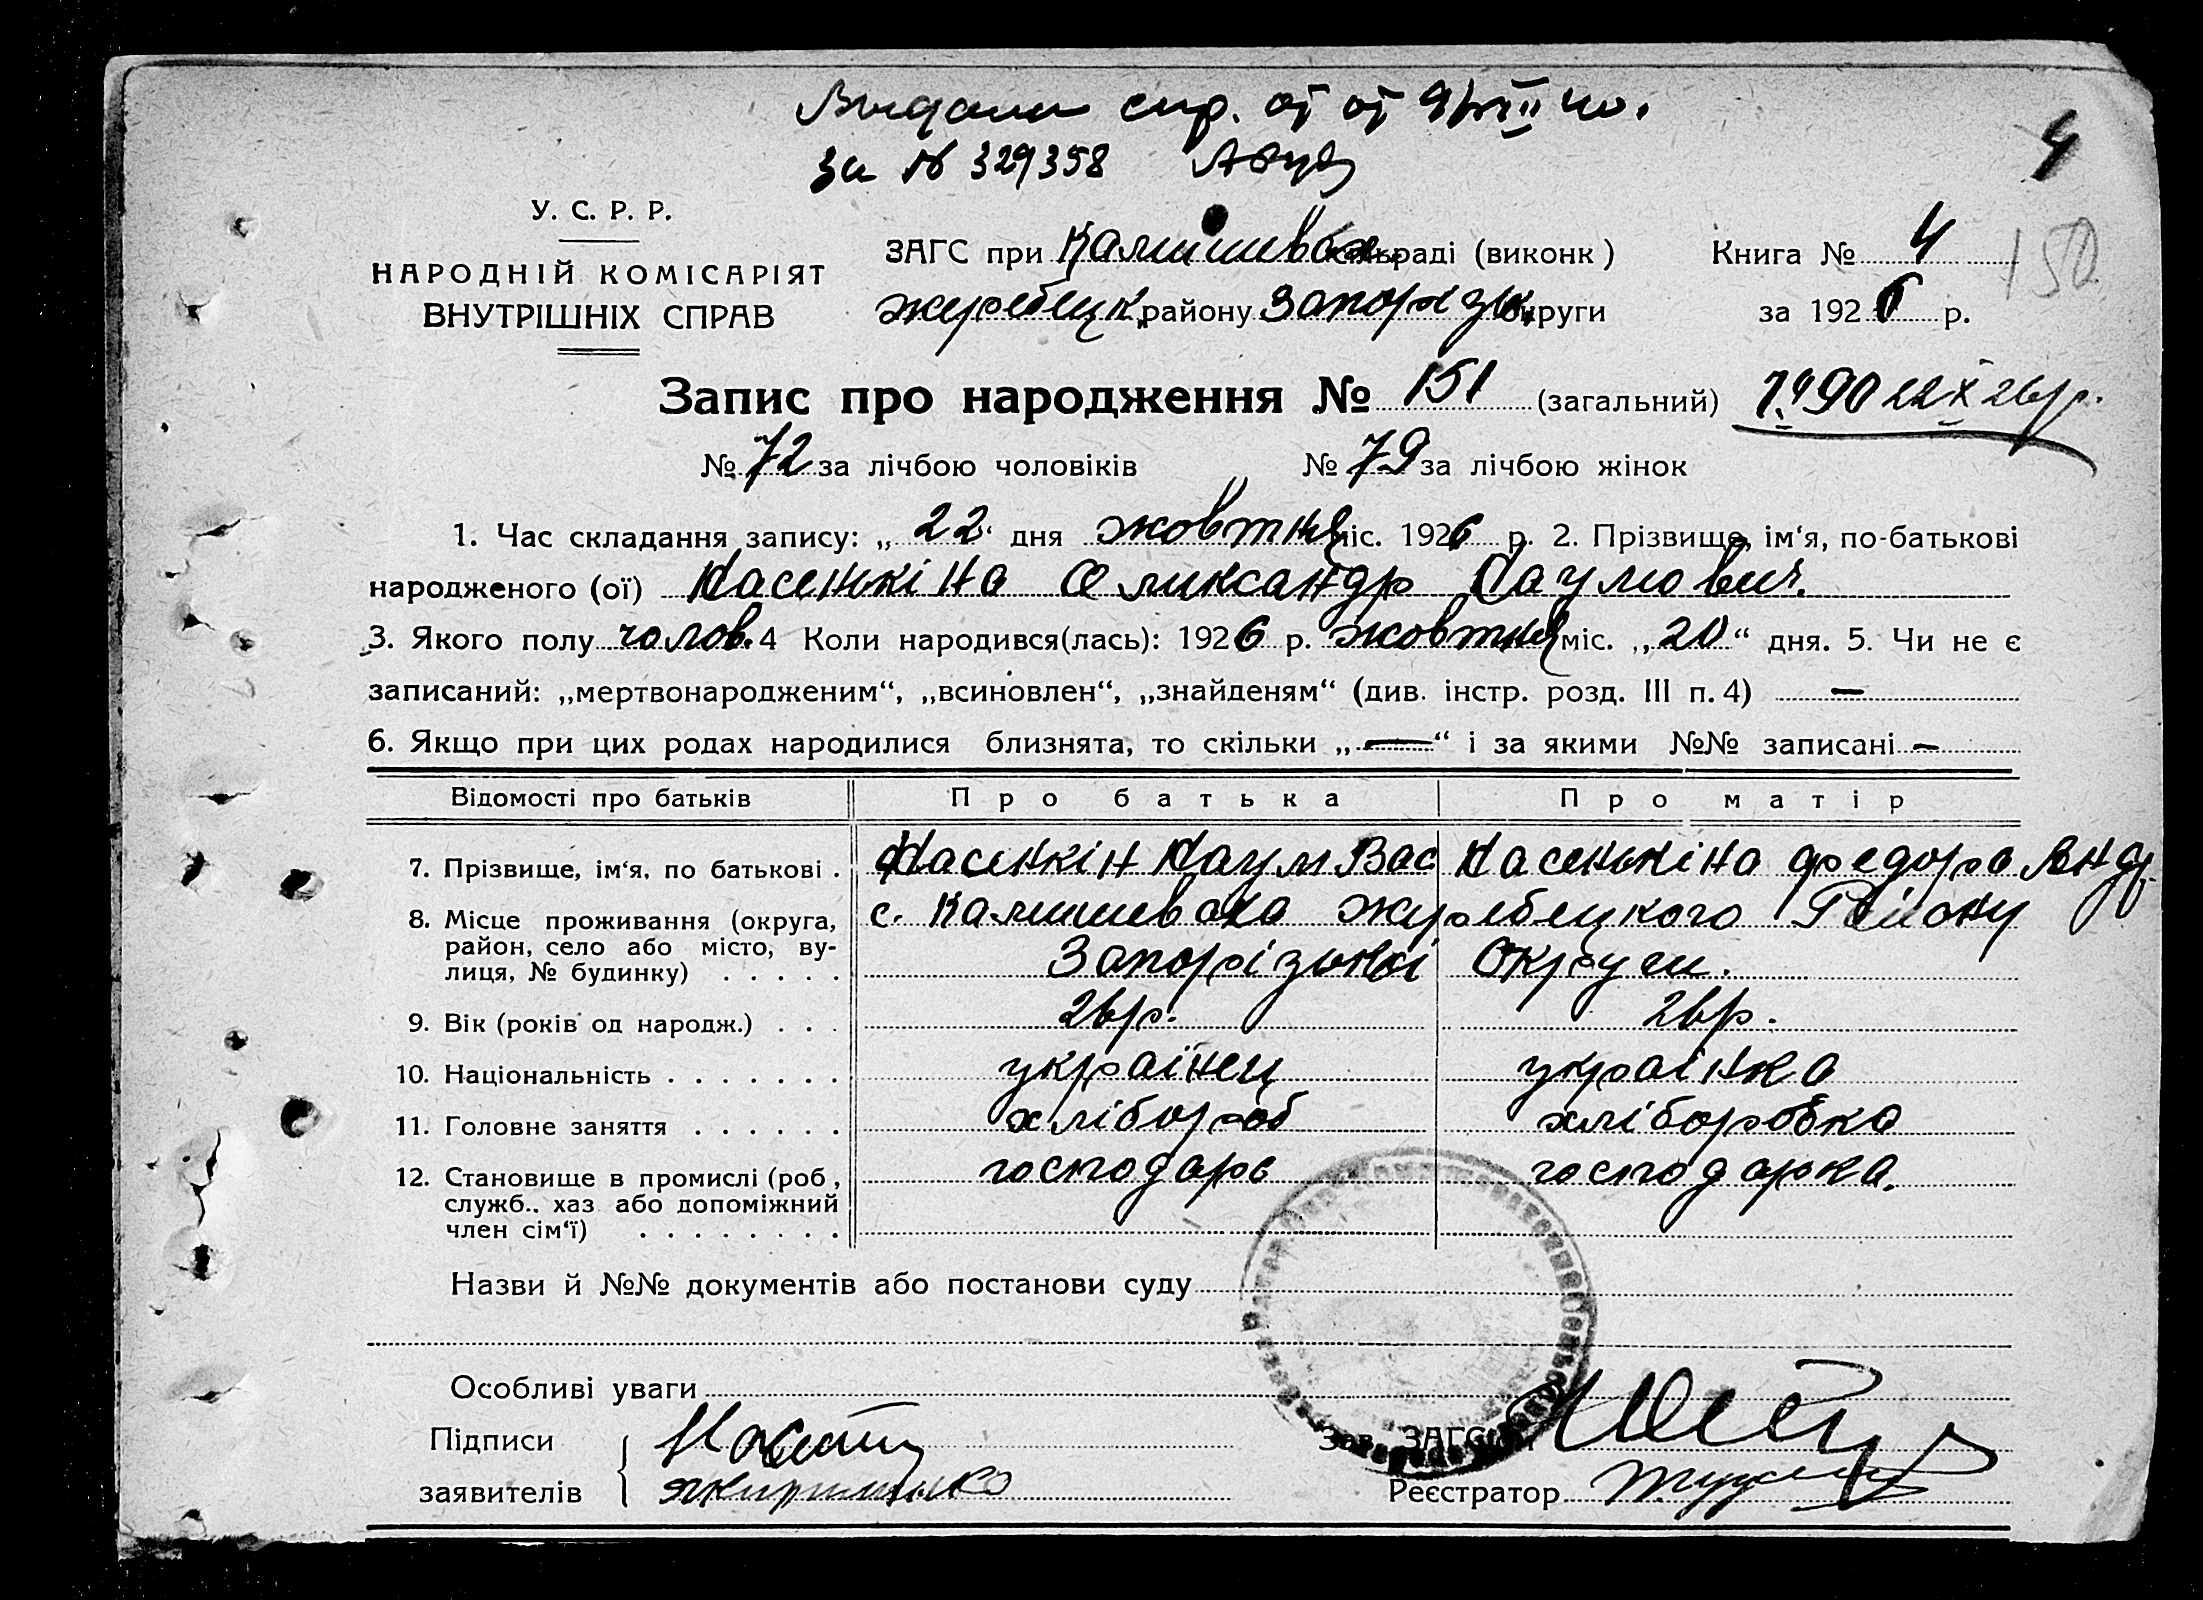 Видана спр. от
за № 329358
4
У. С. Р. Р.
НАРОДНІЙ КОМІСАРІЯТ
ВНУТРІШНІХ СПРАВ
ЗАГС при Камишевах. сільраді (виконк )
Книга № 4
150
жеребецк. району Запорізьк. округи
за 1926 р.
Запис про народження № 151 (загальний) 22 X 26 р.
№ 72 за лічбою чоловіків № 79 за лічбою жінок
1. Час складання запису: „ 22 “ дня жовтня міс. 1926 р. 2. Прізвище, ім‘я, по-батькові
народженого (ої) Насенкіна Оликсандр Наумович.
3. Якого полу чолов. 4 Коли народився(лась): 1926 р. жовтня міс. „ 20 “ дня. 5. Чи не є
записаний: „мертвонародженим“, „всиновлен“, „знайденям“ (див. інстр. розд. III п. 4) —
6. Якщо при цих родах народилися близнята, то скільки „ — “ і за якими №№ записані —
Відомості про батьків Про батька Про матір
7. Прізвище, ім‘я, по батькові . Насенкін Наум Вас Насенькіна Федора Анд.
8. Місце проживання (округа, с. Камишеваха жеребецкого Району
район, село або місто, ву-
лиця, № будинку) . . . . . Запорізької Округи.
9. Вік (років од народж.) . . . 26 р. 26 р.
10. Національність . . . . . . . українец українка
11. Головне заняття . . . . . . хлібороб хліборобка
12. Становище в промислі (роб , господарь господарка.
служб.. хаз або допоміжний
член сім‘ї) . . . . . . . .
Назви й №№ документів або постанови суду
Особливі уваги
Підписи
Зав. ЗАГС‘ом
заявителів
Реєстратор